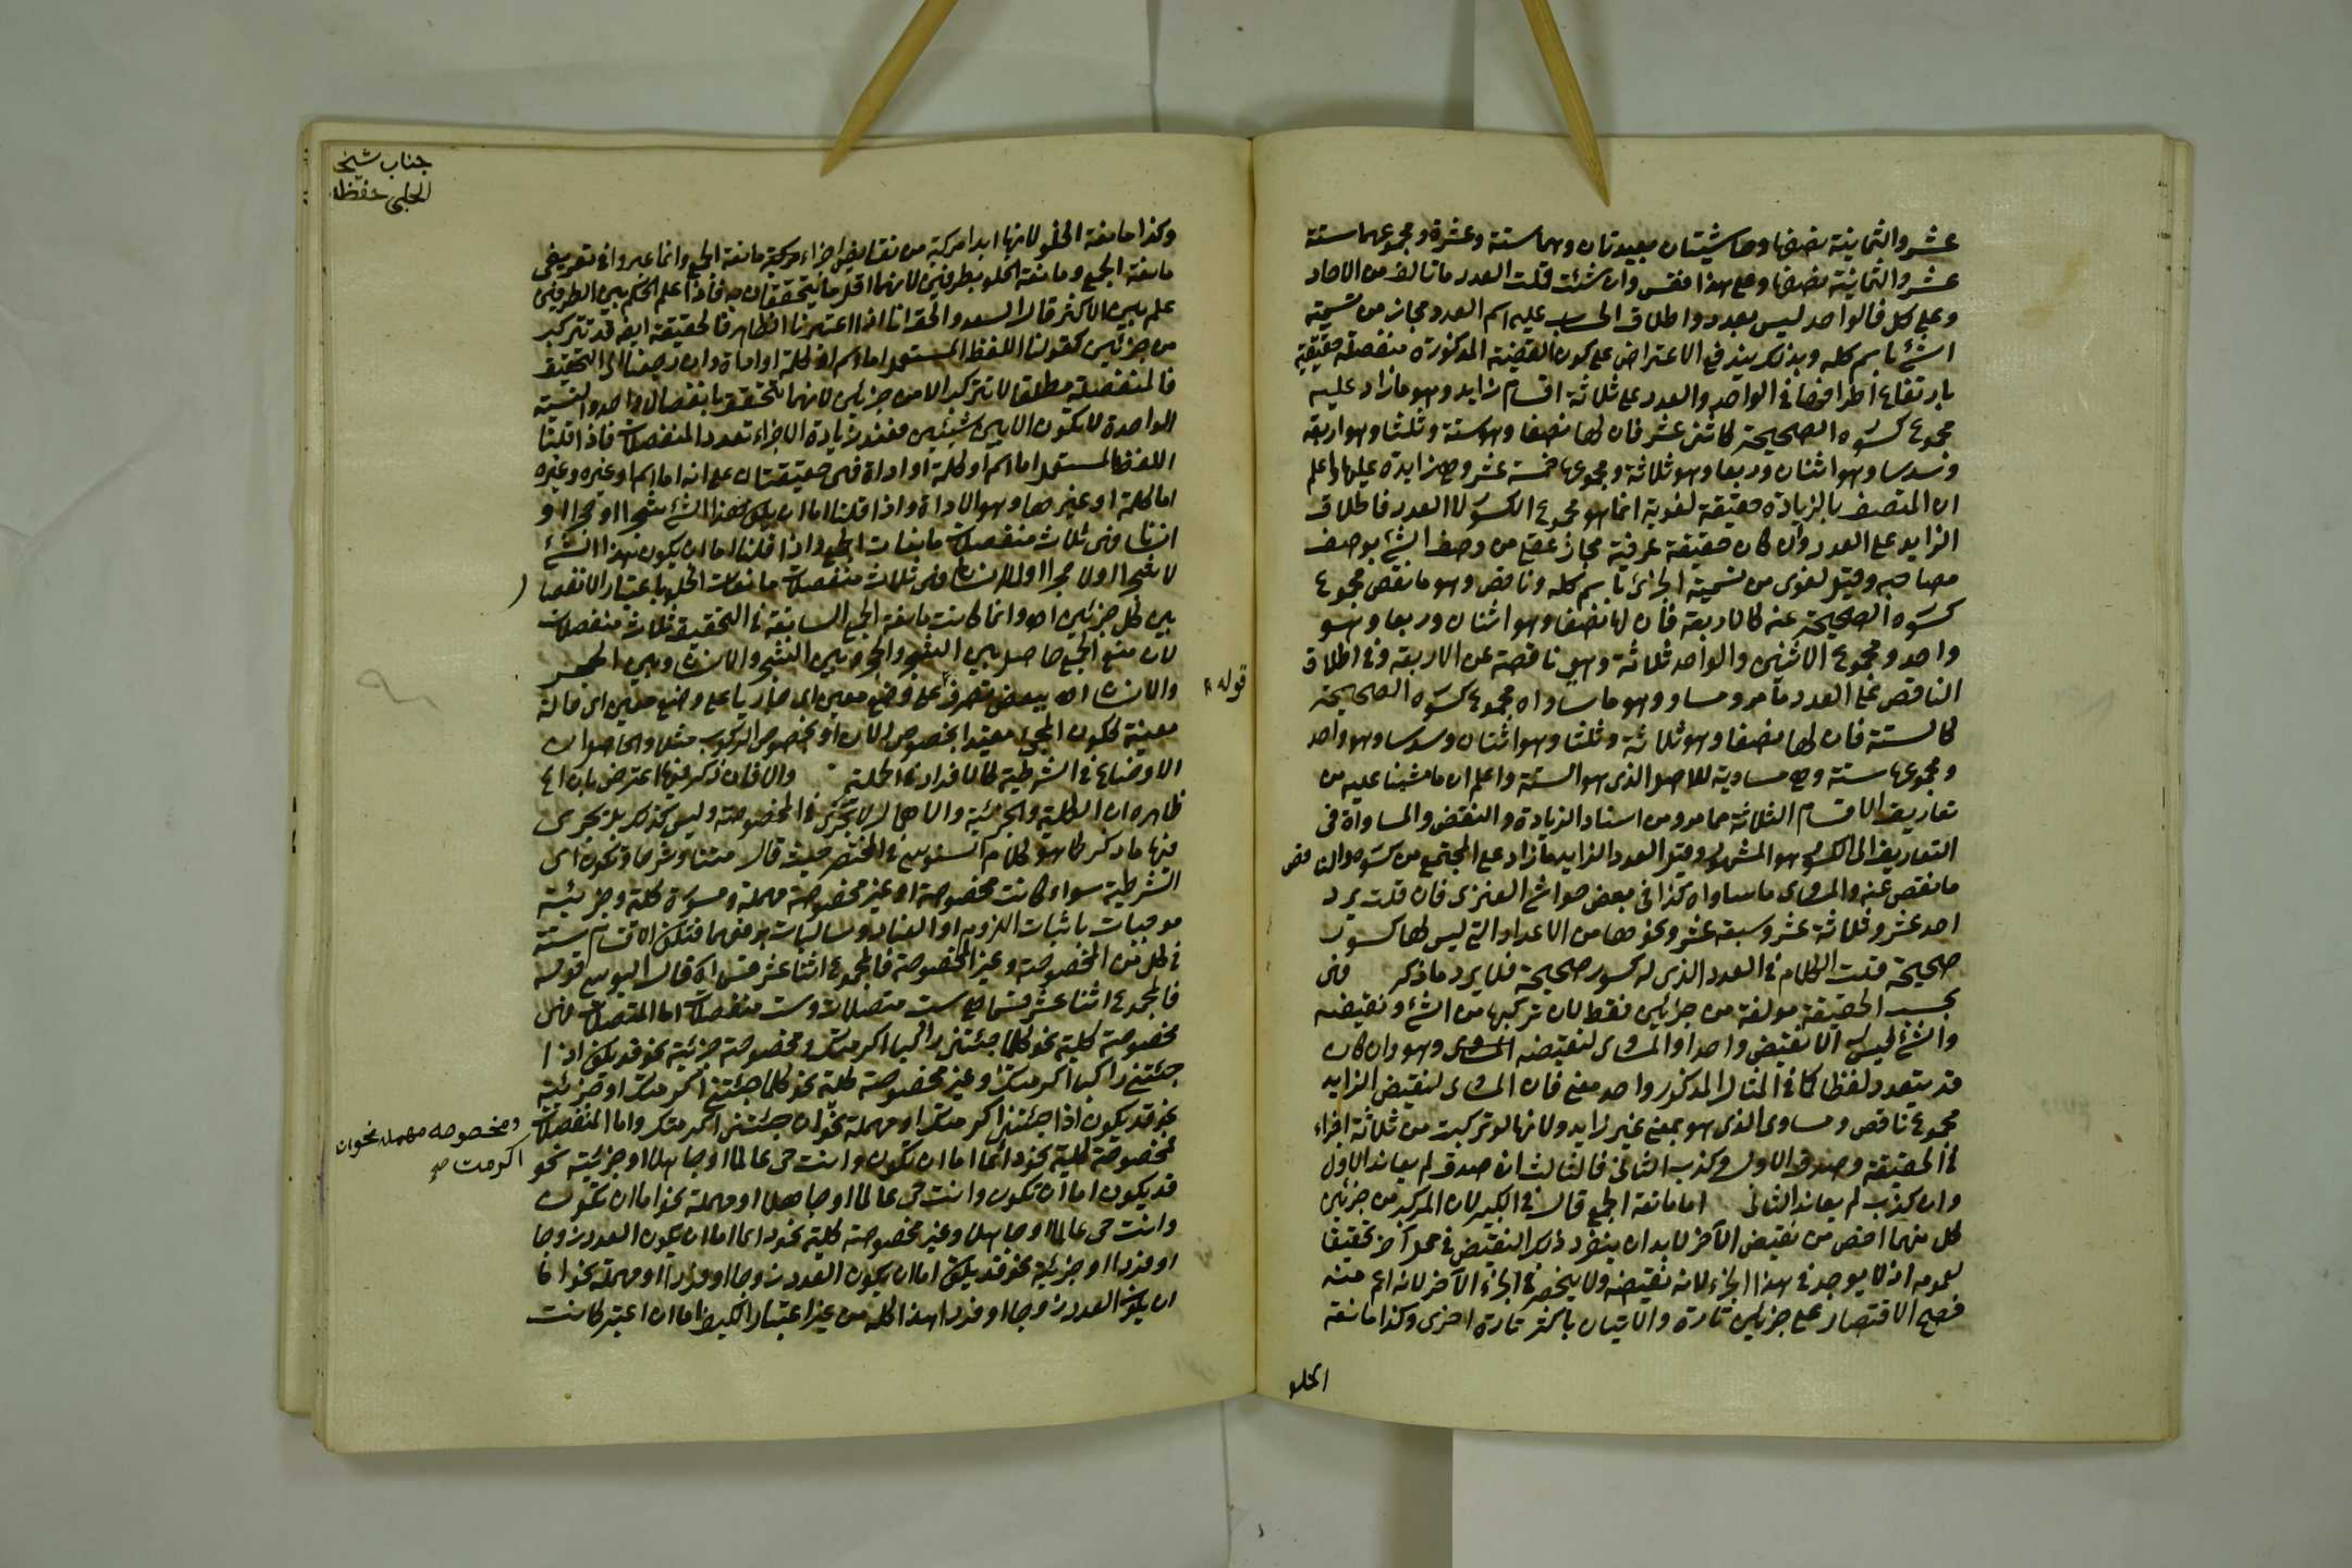 عشر والثمانية نصفها وحاشيتان بعيدتان وهما ستة وعشرة ومجموعهما ستة
عشر والثمانية نصفها وعلى هذا فقس وان شئت قلت العدد ما تالف من الاحاد
وعلى كل فالواحد ليس بعدد واطلاق الحساب عليه اسم العدد مجاز من تسمية
الشئ باسم كله وبذلك يندفع الاعتراض على كون القضية المذكورة منفصلة حقيقية
بارتفاع اطرافها في الواحد والعدد على ثلاثة اقسام زايد وهو ما زاد عليه
مجموع كسوره الصحيحة كاثني عشر فان لها نصفا وهو ستة وثلثا وهو اربعة
وسدسا وهو اثنان وربعا وهو ثلاثة ومجموعها خمسة عشر وهي زايدة عليها واعلم
ان المتصف بالزيادة حقيقة لغوية انما هو مجموع الكسور لا العدد فاطلاق
الزايد على العدد وان كان حقيقة عرفية مجاز عقلي من وصف الشئ بوصف
مصاحبه وقيل لغوى من تسمية الجزئ باسم كله وناقص وهو ما نقص مجموع
كسوره الصحيحة عنه كالاربعة فان لها نصفا وهو اثنان وربعا وهو
واحد ومجموع الاثنين والواحد ثلاثة وهي ناقصة عن الاربعة وفي اطلاق
الناقص على العدد ما مر ومساو وهو ما ساواه مجموع كسوره الصحيحة
كالستة فان لها نصفا وهو ثلاثة وثلثا وهو اثنان وسدسا وهو واحد
ومجموعها ستة وهي مساوية للاصل الذى هو الستة واعلم ان ما مشينا عليه من
تعاريف الاقسام الثلاثة مما مر ومن اسناد الزيادة والنقص والمساواة في
التعاريف الى الكسور هو المشهور وقيل العدد الزايد ما زاد على المجتمع من كسوره والناقص
ما نقص عنه والمساوى ما ساواه كذا في بعض حواشي الفنرى فان قلت يرد
احد عشر وثلاثة عشر وسبعة عشر ونحوها من الاعداد التي ليس لها كسور
صحيحة قلت الكلام في العدد الذى له كسور صحيحة فلا يرد ما ذكر فهى
بحسب الحقيقة مولفة من جزئين فقط لان تركبها من الشئ ونقيضه
والشئ ليس له الا نقيض واحد او المساوى لنقيضه وهو وان كان
قد يتعدد لفظا كما في المثال المذكور واحد معنى فان المساوى لنقيض الزايد
مجموع ناقص ومساوى الذى هو بمعنى غير زايد ولانها لو تركبت من ثلاثة اجزاء
في الحقيقة وصدق الاول وكذب الثاني فالثالث ان صدق لم يعاند الاول
وان كذب لم يعاند الثاني اما مانعة الجمع قال في الكبير لان المركب من جزئين
كل منهما اخص من نقيض الآخر لا بد ان ينفرد ذلك النقيض في محل آخر تحقيقا
لعمومه اذ لا يوجد في هذا الجزء لانه نقيضه ولا ينحصر في الجزء الآخر لانه اعم منه
فصح الاقتصار على جزئين تارة والاتيان باكثر تارة اخرى وكذا مانعة
الخلو
جناب شيخ
الحلبي حفظه
وكذا مانعة الخلو لانها ابدا مركبة من نقايض اجزاء مركبة مانعة الجمع وانما عبروا في تعريفي
مانعة الجمع ومانعة الخلو بطرفين لانهما اقل ما يتحققان به فاذا علم الحكم بين الطرفين
علم بين الاكثر قال السعد والحق انا اذا اعتبرنا الظاهر فالحقيقة ايضا قد تتركب
من جزئين كقولنا اللفظ المستعمل اما اسم او كلمة او اداة وان رجعنا الى التحقيق
فالمنفصلة مطلقا لا تتركب الا من جزئين لانهما تتحقق بانفصال واحد والنسبة
الواحدة لا تكون الا بين شيئين فعند زيادة الاجزاء تعدد المنفصلات فاذا قلنا
اللفظ المستعمل اما اسم او كلمة او اداة فهى حقيقتان على انه اما اسم او غيره وغيره
اما كلمة او غيرها وهو الاداة واذا قلنا اما ان يكون هذا الشئ شجرا او حجرا او
انسانا فهى ثلاث منفصلات مانعات الجمع واذا قلنا اما ان يكون هذا الشئ
لا شجرا او لا حجرا او لا انسانا فهى ثلاث منفصلات مانعات الخلو باعتبار الانفصا
بين كل جزئين اه وانما كانت مانعة الجمع السابقة في التحقيق ثلاث منفصلات
لان منع الجمع حاصل بين الشجر والحجر وبين الشجر والانسان وبين الحجر
والانسان اه ببعض تصرف على وضع معين اى جاريا على وضع معين اى حالة
معينة ككون المجئ مقيدا بخصوص الآن او بخصوص الركوب مثلا والحاصل ان
الاوضاع في الشرطية كالافراد في الحملية والا فان ذكر فيها اعترض بان
ظاهره ان الكلية والجزئية والاهمال لا تجرى في المخصوصة وليس كذلك بل تجرى
فيها ما ذكر كما هو كلام السنوسي في المختصر حيث قال متنا وشرحا وتكون اى
الشرطية سواء كانت مخصوصة او غير مخصوصة مهملة ومسورة كلية وجزئية
موجبات باثبات اللزوم او العناد وسالبات برفعهما فتلك الاقسام ستة
في كل من المخصوصة وغير المخصوصة فالمجموع اثنا عشر قسما اه قال اليوسي قوله
فالمجموع اثنا عشر قسما اى ست متصلات وست منفصلات اما المتصلات فهى
مخصوصة كلية نحو كلما جئتني راكبا اكرمتك ومخصوصة جزئية نحو قد يكون اذا
جئتني راكبا اكرمتك وغير مخصوصة كلية نحو كلما جئتني اكرمتك او جزئية
نحو قد يكون اذا جئتني اكرمتك او مهملة نحو ان جئتني اكرمتك واما المنفصلات
فمخصوصة كلية نحو دائما اما ان تكون وانت حى عالما او جاهلا او جزئية نحو
قد يكون اما ان تكون وانت حى عالما او جاهلا او مهملة نحو اما ان تكون
وانت حى عالما او جاهلا وغير مخصوصة كلية نحو دائما اما ان يكون العدد زوجا
او فردا او جزئية نحو قد يكون اما ان يكون العدد زوجا او فردا او مهملة نحو اما
ان يكون العدد زوجا او فردا هذا كله من غير اعتبار الكيف اما ان اعتبر كانت
قوله
ومخصوصه مهمله نحو ان
اكرمت صح